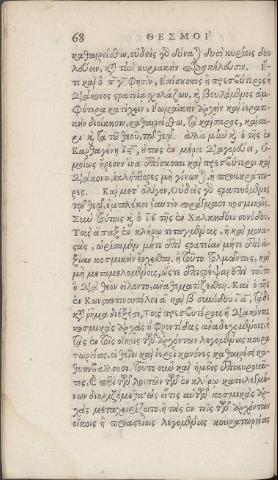 68 ΘΕΣΜΟΙ
καθαιρείσθω, οὐδεὶς γὰρ δύναται δυσὶ κυρίοις δου
λεύειν, κατὰ τὴν κυριακὴν παρακέλευσιν. Ἔ-
τι καὶ ὁ πγ φησὶν, Ἐπίσκοπος ἢ πρεσβύτερος ἢ
διάκονος στρατεία σχολάζων, καὶ βουλόμενος ἀμ-
φότερα κατέχειν, Ῥωμαϊκὴν ἀρχὴν καὶ ἱερατι-
κὴν διοίκησιν, καθαιρείσθω. τὰ καίσαρος, καίσα-
ρι· καὶ τὰ τοῦ θεοῦ, τῷ θεῷ. ἀλλὰ μὴν καὶ ὁ τῆς ἐν
Καρθαγένῃ ις, οὕτως ἐν μέρει διαγορεύει, Ὁ-
μοίως ἤρεσεν ἵνα ἐπίσκοποι καὶ πρεσβύτεροι καὶ
διάκονοι, ἐκλήπτορες μὴ γένωνται, ἢ προκουράτο-
ρες.
Καὶ μετ' ὀλίγον, Οὐδεὶς γὰρ στρατευόμενος
τῷ θεῷ, ἐμπλέκει ἑαυτὸν πράγμασι κοσμικοῖς.
Σὺν τούτοις καὶ ὁ τῆς ἐν Χαλκηδόνι συνόδου,
Τοὺς ἅπαξ ἐν κλήρῳ τεταγμένους, ἢ καὶ μονα-
χοὺς, ὡρίσαμεν μήτε ἐπὶ στρατείαν μήτε ἐπὶ ἀ-
ξίαν κοσμικὴν ἔρχεσθαι, ἢ τοῦτο τολμῶντας, καὶ
μὴ μεταμελομένους, ὥστε ἐπιστρέψαι ἐπὶ τοῦτο
ὃ διὰ θεὸν εἵλοντο, ἀναθεματίζεσθαι. Καὶ ὁ τῆς
ἐν Κωνσταντινουπόλει α καὶ β συνόδου ια, τάδε
κατὰ ῥῆμα διέξεισι, Τοὺς πρεσβυτέρους ἢ διακόνους
κοσμικὰς ἀρχὰς ἢ φροντίδας ἀναδεχομένους, ἢ
τὰς ἐν τοῖς οἴκοις τῶν ἀρχόντων λεγομένας κουρα
τωρείας, οἱ θεῖοι καὶ ἱεροὶ κανόνες καθαιρέσει κα-
θυποβάλλουσι. τοῦτο οὖν καὶ ἡμεῖς ἐπικυροῦμεν-
τες, καὶ περὶ τῶν λοιπῶν τῶν ἐν κλήρῳ καταλεγομέ-
νων διοριζόμεθα, ὡς εἴ τις αὐτῶν κοσμικὰς ἀρ-
χὰς μεταχειρίζοιτο, ἢ τὰς ἐν τοῖς τῶν ἀρχόντων
οἴκοις ἢ προαστείοις λεγομένας κουρατωρείας